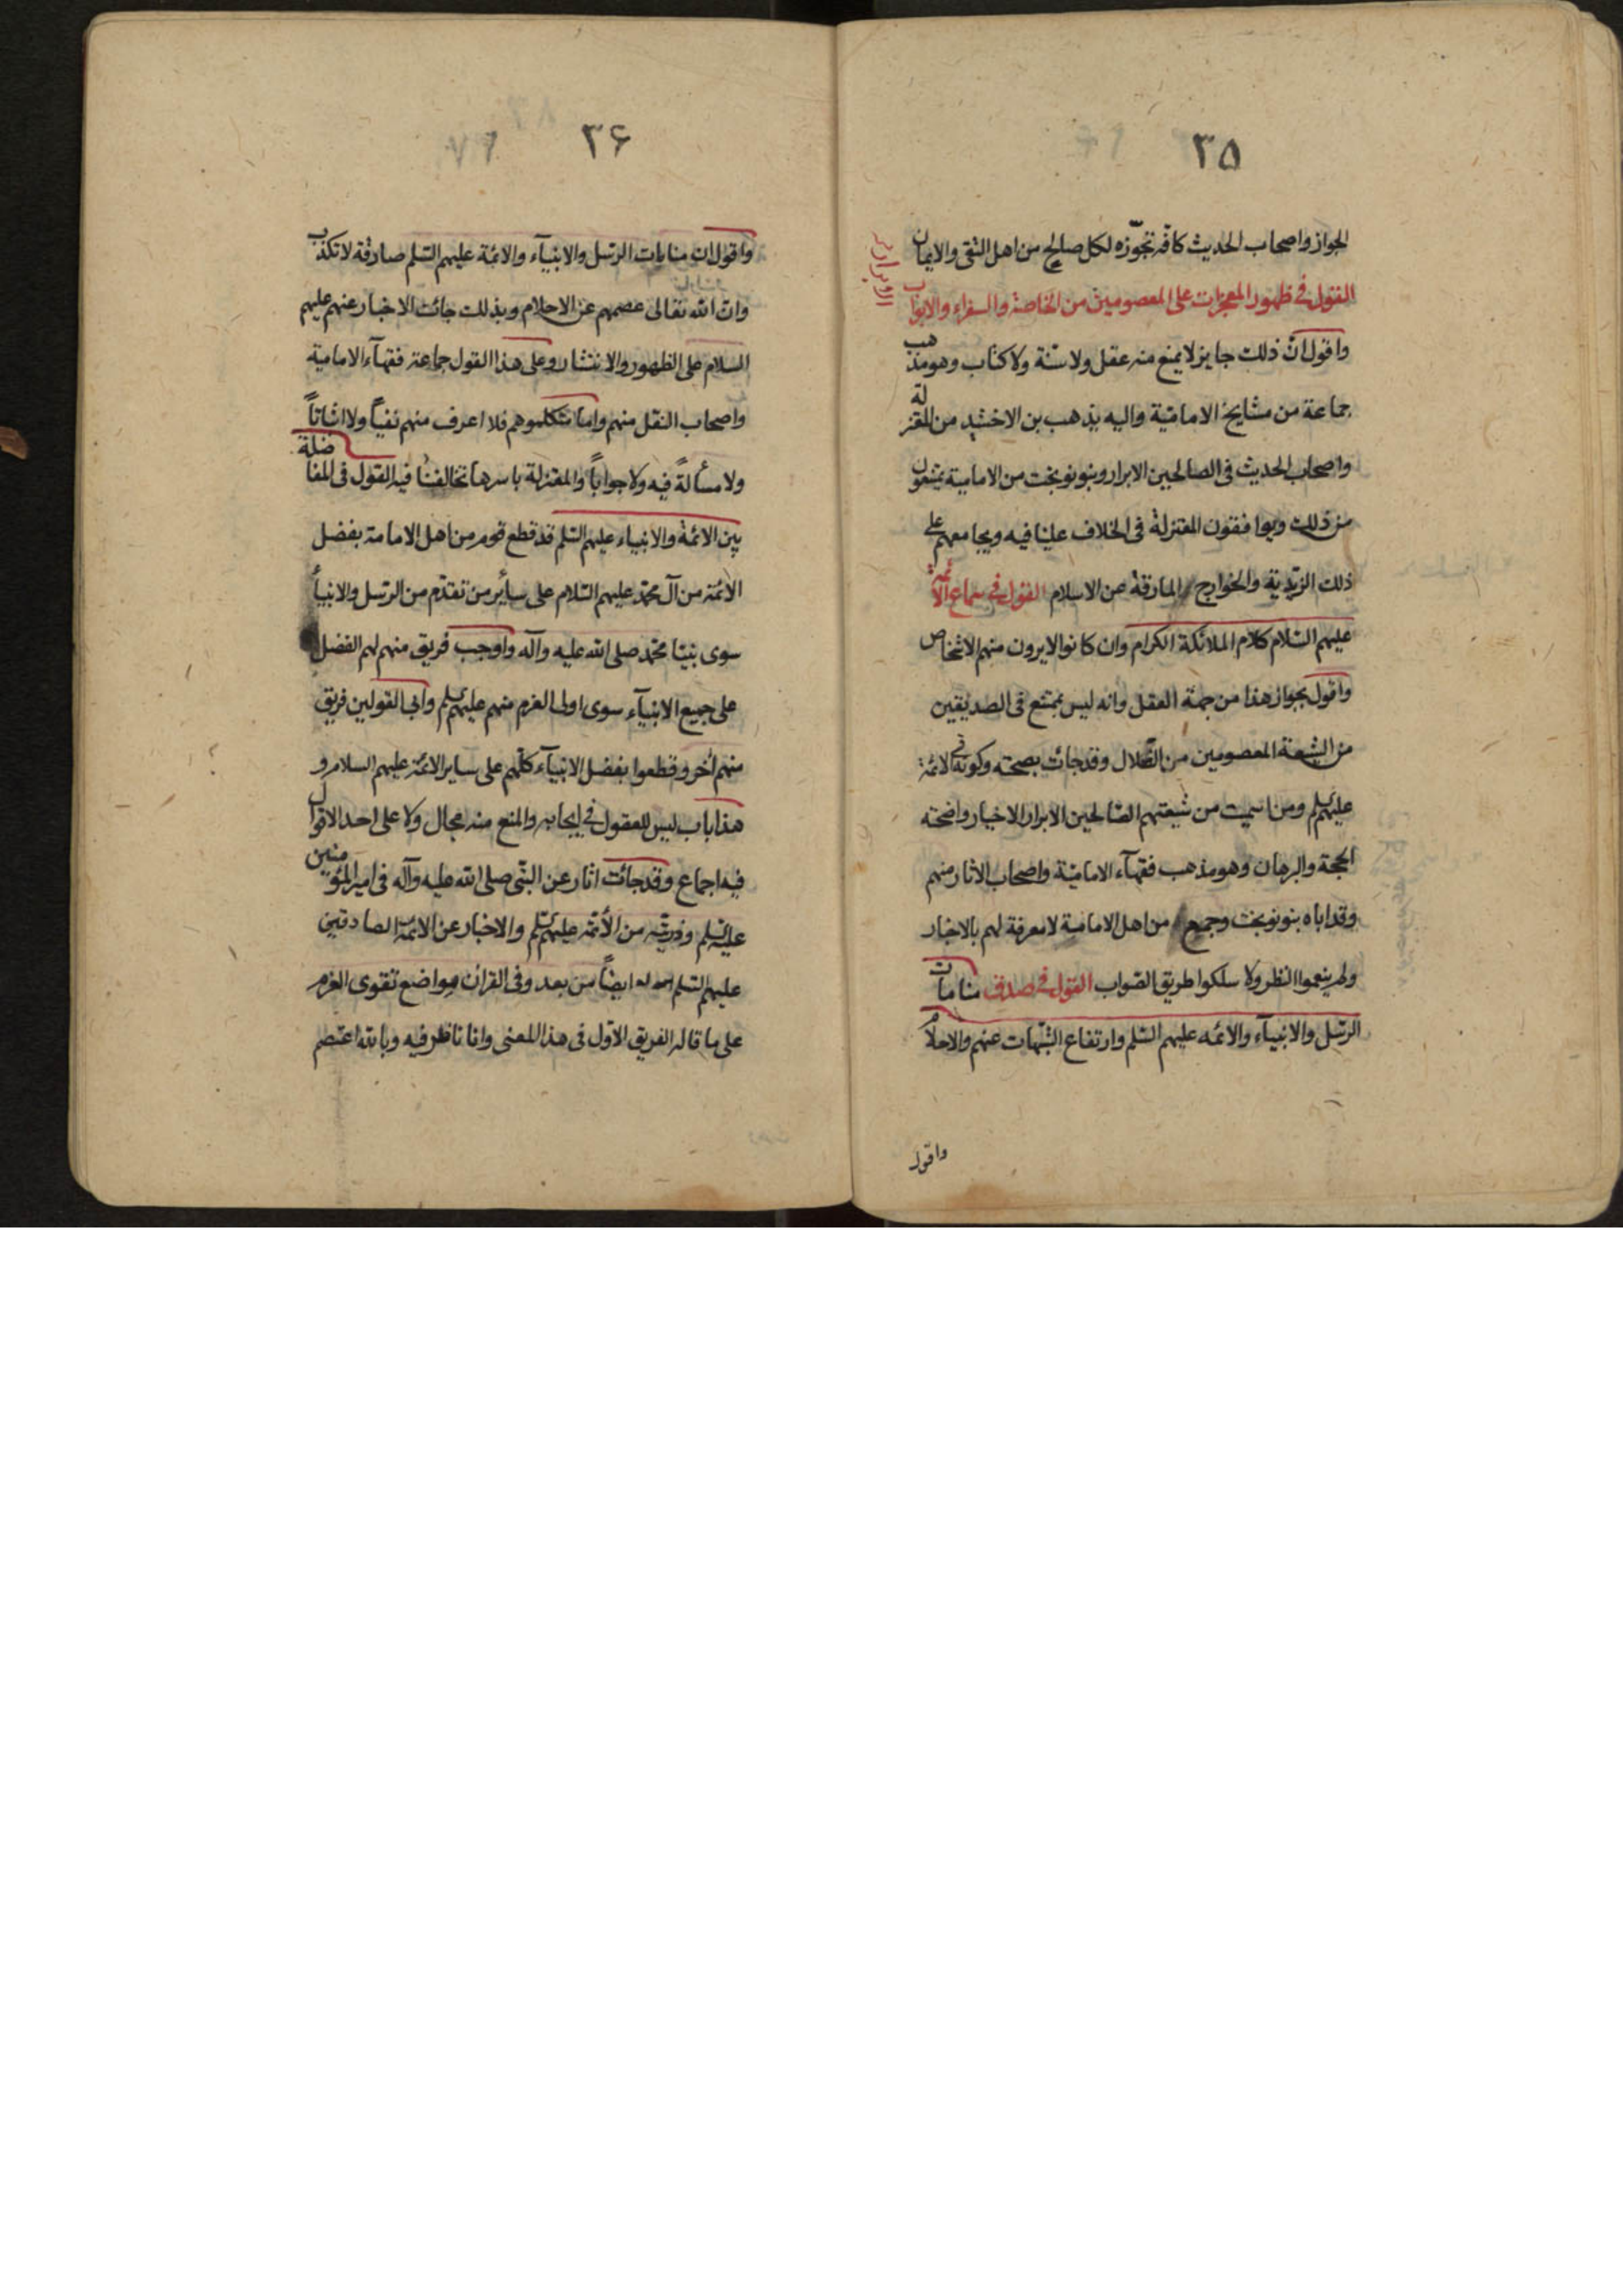 ٣٥
الجواز واصحاب الحديث كافة تجوّزه لكل صالح من اهل التقى والايمان
القول فى ظهور المعجزات على المعصومين من الخاصة والسفراء والابواب
الابرار
واقول انّ ذلك جايز لا يمنع منه عقل ولا سنّة ولا كتاب وهو مذهب
جماعة من مشايخ الامامية واليه يذهب بن الاخشيد من المعتزلة
واصحاب الحديث فى الصالحين الابرار وبنو نوبخت من الامامية يمنعون
من ذلك ويوافقون المعتزلة فى الخلاف علينا فيه ويجامعهم على
ذلك الزيدية والخوارج المارقة عن الاسلام القول فى سماع الائمة
عليهم السلام كلام الملائكة الكرام وان كانوا لا يرون منهم الاشخاص
واقول بجواز هذا من جهة العقل وانه ليس بممتنع فى الصديقين
من الشيعة المعصومين من الضّلال وقد جائت بصحته وكونه فى الائمة
عليهم السلم ومن اسميت من شيعتهم الصّالحين الابرار الاخيار واضحته
الحجة والبرهان وهو مذهب فقهآء الاماميّة واصحاب الاثار منهم
وقد اباه بنو نوبخت وجميع من اهل الامامية لا معرفة لهم بالاخبار
ولم ينعموا النظر ولا سلكوا طريق الصّواب القول فى صدق منامات
الرّسل والانبيآء والائمه عليهم السّلم وارتفاع الشّبهات عنهم والاحلام
واقول
٣۶
واقول ان منامات الرّسل والانبيآء والائمّة عليهم السّلم صادقة لا تكذب
وان الله تعالى عصمهم عن الاحلام وبذلك جائت الاخبار عنهم عليهم
السلام على الظهور والانتشار وعلى هذا القول جماعة فقهآء الامامية
واصحاب النقل منهم واما متكلموهم فلا اعرف منهم نفياً ولا اثباتاً
ولا مسألةً فيه ولا جواباً والمعتزلة باسرها تخالفنا فيه القول فى المفاضلة
بين الائمة والانبياء عليهم السّلم قد قطع قوم من اهل الامامة بفضل
الائمّة من آل محمّد عليهم السّلام على سائر من تقدّم من الرّسل والانبيآء
سوى نبيّنا محمّد صلى الله عليه وآله واوجب فريق منهم لهم الفضل
على جميع الانبيآء سوى اولى العزم منهم عليهم السلم وابى القولين فريق
منهم آخر وقطعوا بفضل الانبيآء كلّهم على ساير الائمّة عليهم السلام و
هذا باب ليس للعقول فى ايجابه والمنع منه مجال ولا على احد الاقوال
فيه اجماع وقد جائت اثار عن النبّى صلى الله عليه وآله فى امير المؤمنين
عليه السّلم وذريّته من الأئمّه عليهم السّلم والاخبار عن الائمّة الصادقين
عليهم السّلم ايضاً من بعد وفى القرآن مواضع تقوى العزم
على ما قاله الفريق الاوّل فى هذا المعنى وانا ناظر فيه وبالله اعتصم